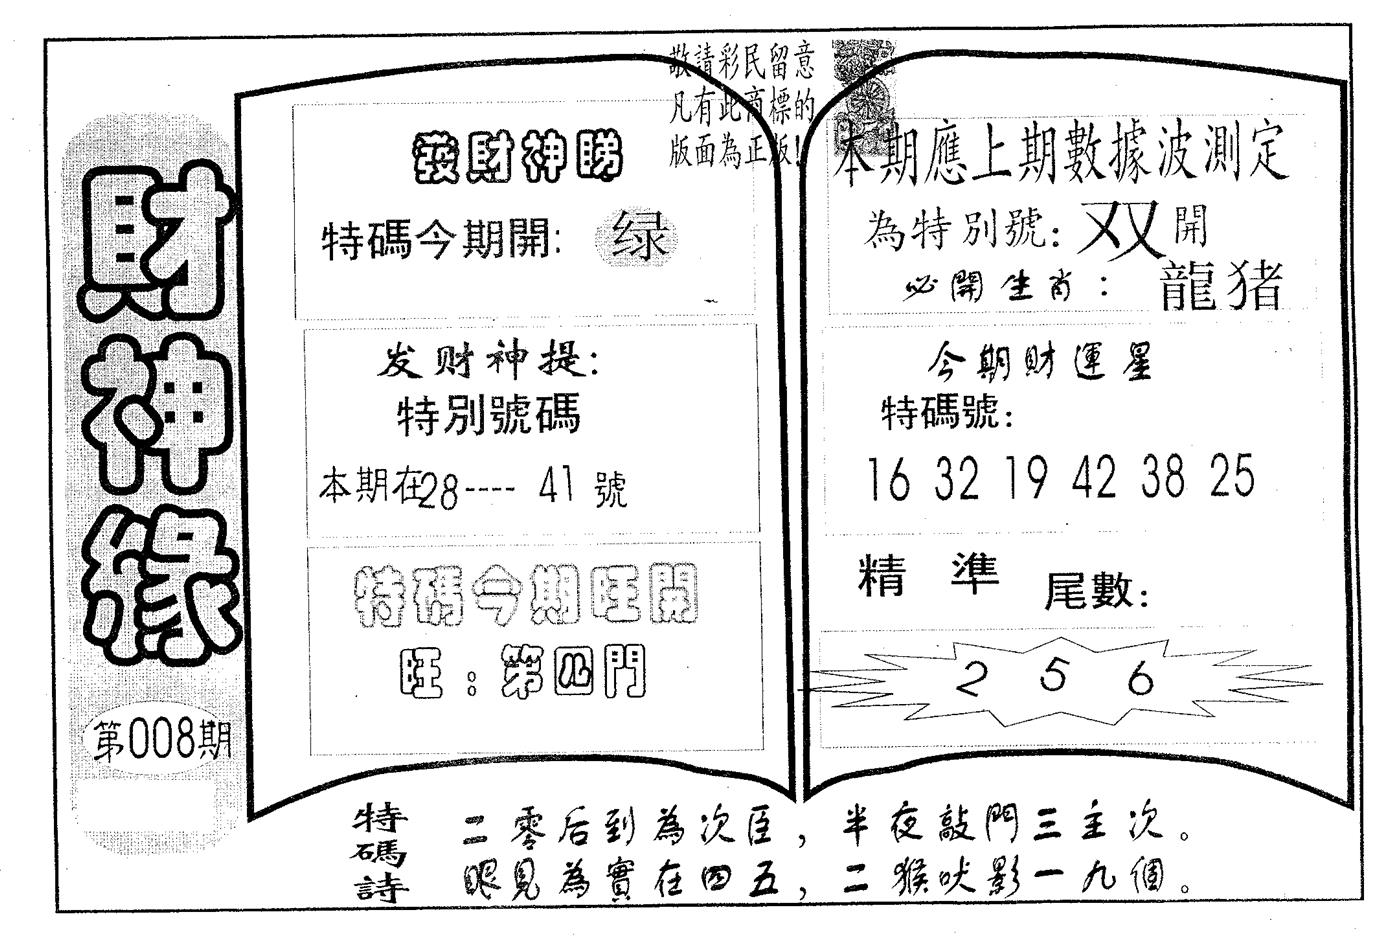 財神緣
第008期
敬請彩民留意
凡有此商標的
版面為正版!
發財神睇
特碼今期開: 绿
发财神提:
特別號碼
本期在28---- 41 號
特碼今期旺開
旺:第四門
本期應上期數據波測定
為特別號: 双 開
必開生肖: 龍猪
今期財運星
特碼號:
16 32 19 42 38 25
精準 尾數:
2 5 6
特碼詩
二零后到為次臣,半夜敲門三主次。
眼見為實在四五,二猴吠影一九個。